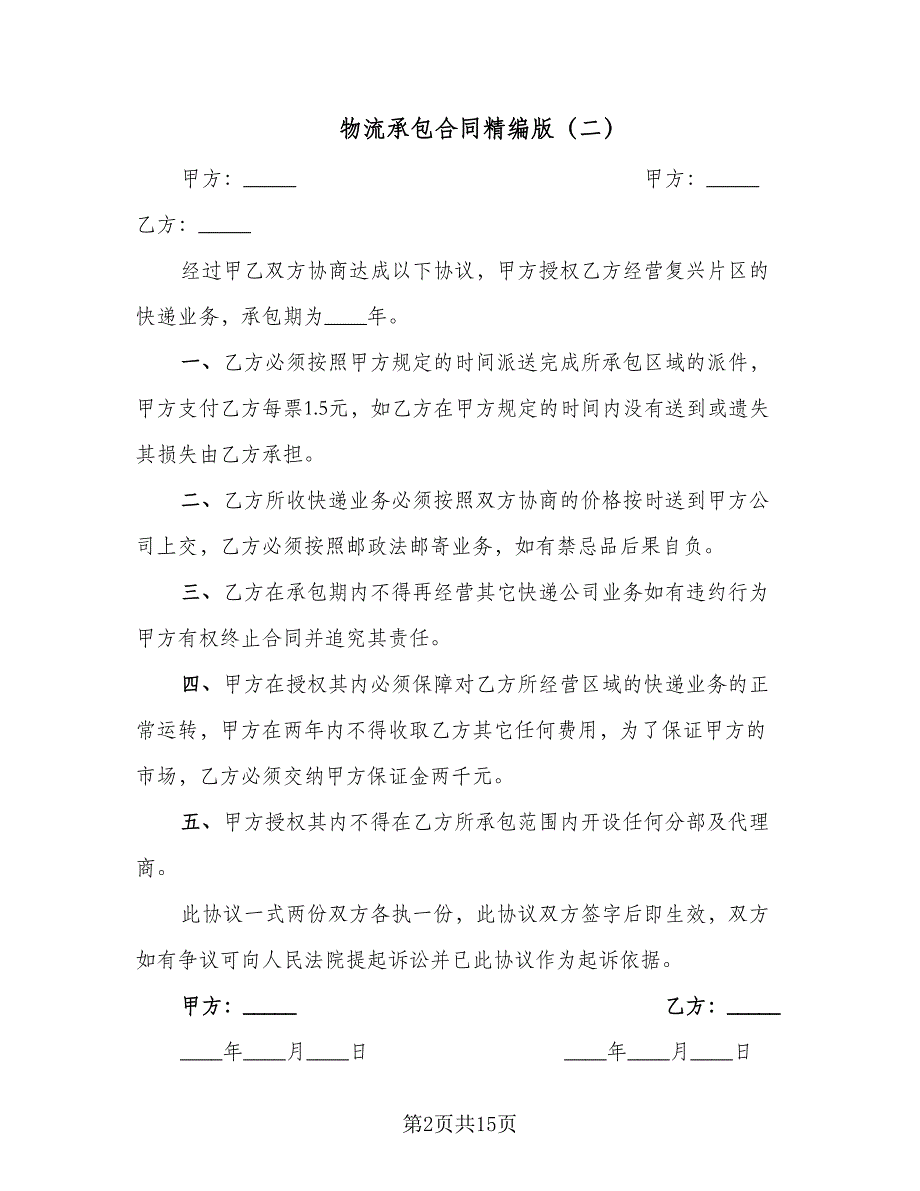 物流承包合同精编版（二）
甲方：_____ 甲方：_____
乙方：_____
经过甲乙双方协商达成以下协议，甲方授权乙方经营复兴片区的
快递业务，承包期为____年。
一、乙方必须按照甲方规定的时间派送完成所承包区域的派件，
甲方支付乙方每票1.5元，如乙方在甲方规定的时间内没有送到或遗失
其损失由乙方承担。
二、乙方所收快递业务必须按照双方协商的价格按时送到甲方公
司上交，乙方必须按照邮政法邮寄业务，如有禁忌品后果自负。
三、乙方在承包期内不得再经营其它快递公司业务如有违约行为
甲方有权终止合同并追究其责任。
四、甲方在授权其内必须保障对乙方所经营区域的快递业务的正
常运转，甲方在两年内不得收取乙方其它任何费用，为了保证甲方的
市场，乙方必须交纳甲方保证金两千元。
五、甲方授权其内不得在乙方所承包范围内开设任何分部及代理
商。
此协议一式两份双方各执一份，此协议双方签字后即生效，双方
如有争议可向人民法院提起诉讼并已此协议作为起诉依据。
甲方：_____ 乙方：_____
____年____月____日 ____年____月____日
第2页共15页